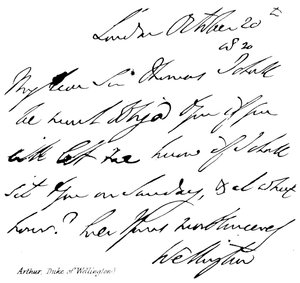 London October 20th
1820
My dear Sir Thomas I shall
be much obliged to you if you
will let me know if I shall
sit to you on Sunday, & at what
hour? Ever Yours most sincerely
Wellington
Arthur, Duke of Wellington)